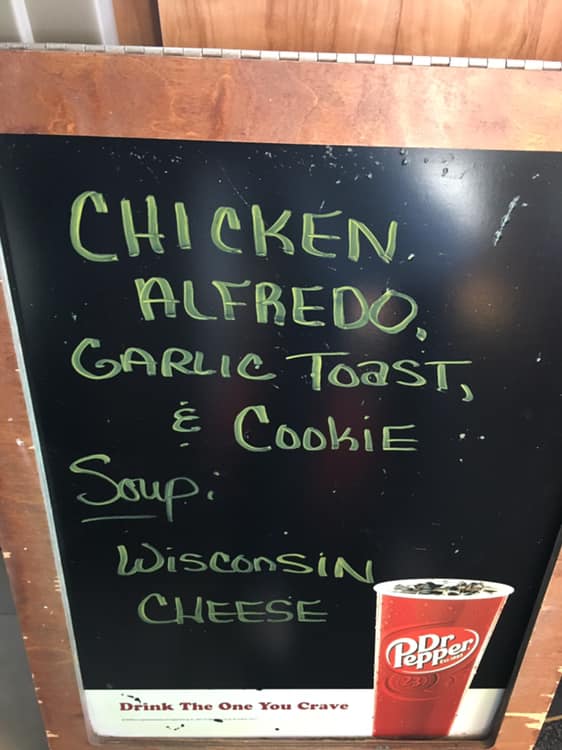 CHICKEN
ALFREDO,
GARLIC TOAST,
& COOKIE
Soup:
WISCONSIN
CHEESE
Dr
Pepper
23
Drink The One You Crave